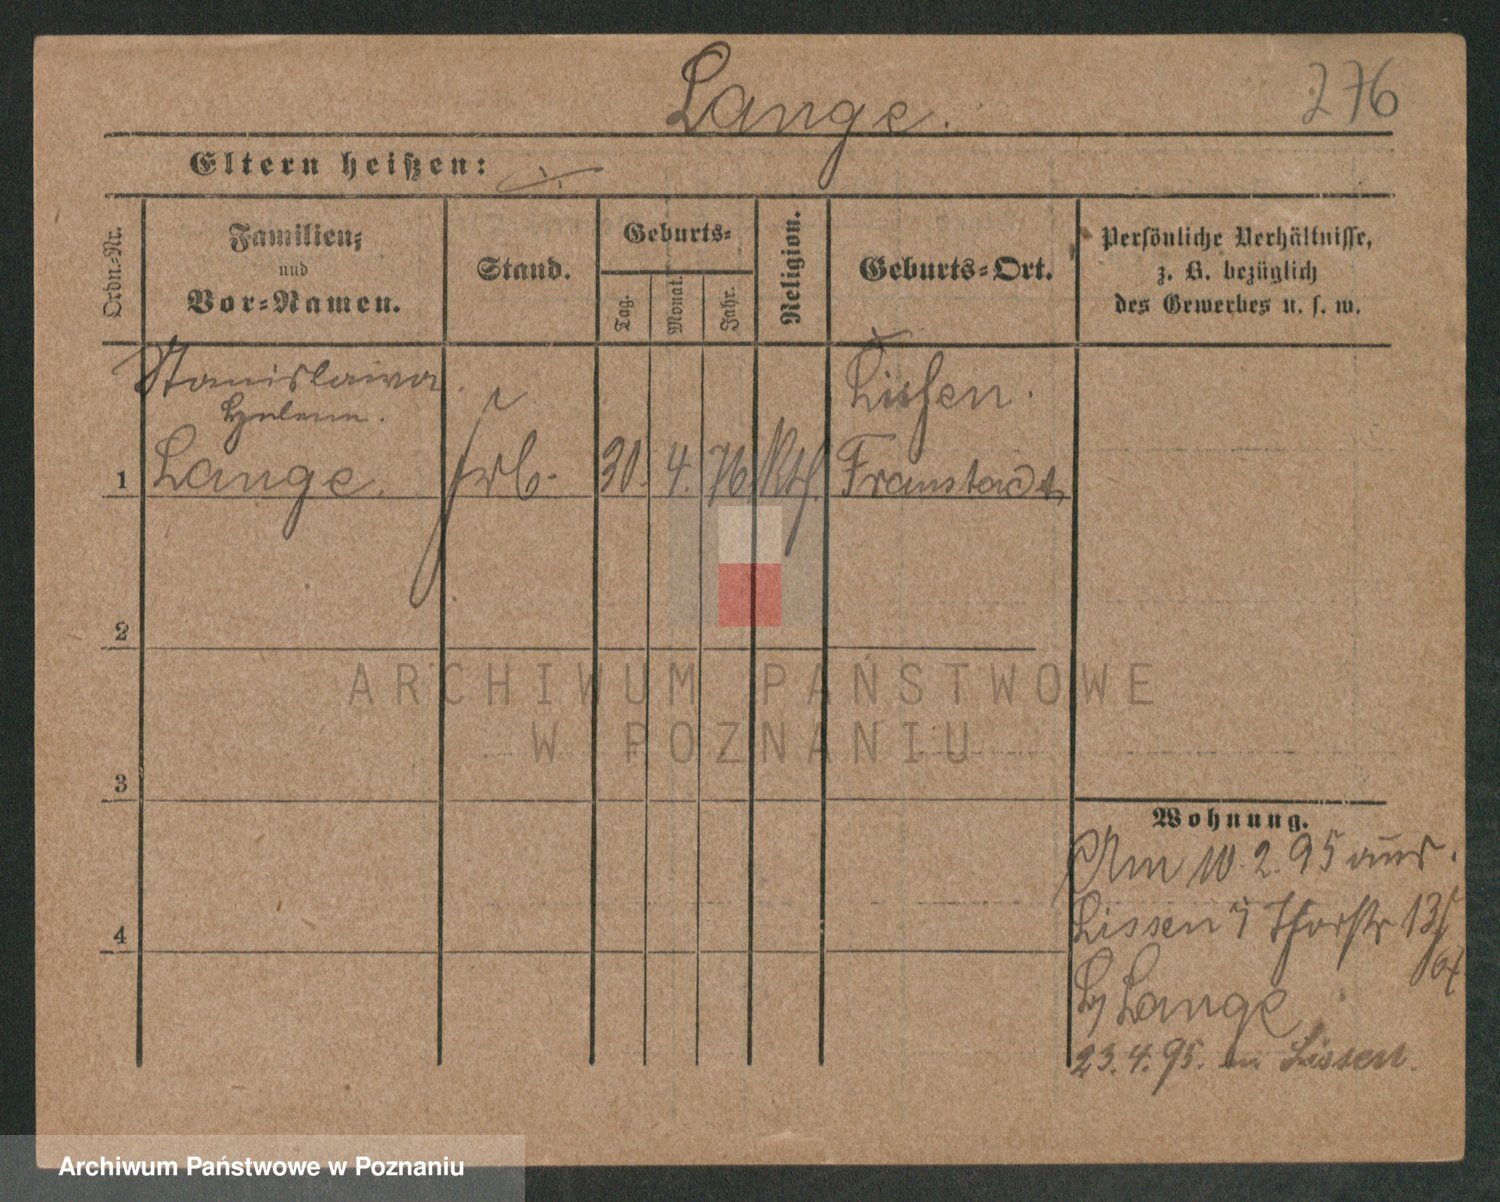 Lange.
276
Eltern heißen:
Ordn.-Nr.
Familien-
und
Vor-Namen.
Stand.
Geburts-
Tag.
Monat.
Jahr.
Religion.
Geburts-Ort.
Persönliche Verhältnisse,
z. B. bezüglich
des Gewerbes u. s. w.
Stanislawa
Helene.
1 Lange. 30. 4. 76 Kth.
Lissen.
Fraustadt
2
3
4
Wohnung.
Am 10.2.95 aus
Lissen Thorstr 13
Lange
23.4.95. Lissen.
ARCHIWUM PAŃSTWOWE
W POZNANIU
Archiwum Państwowe w Poznaniu